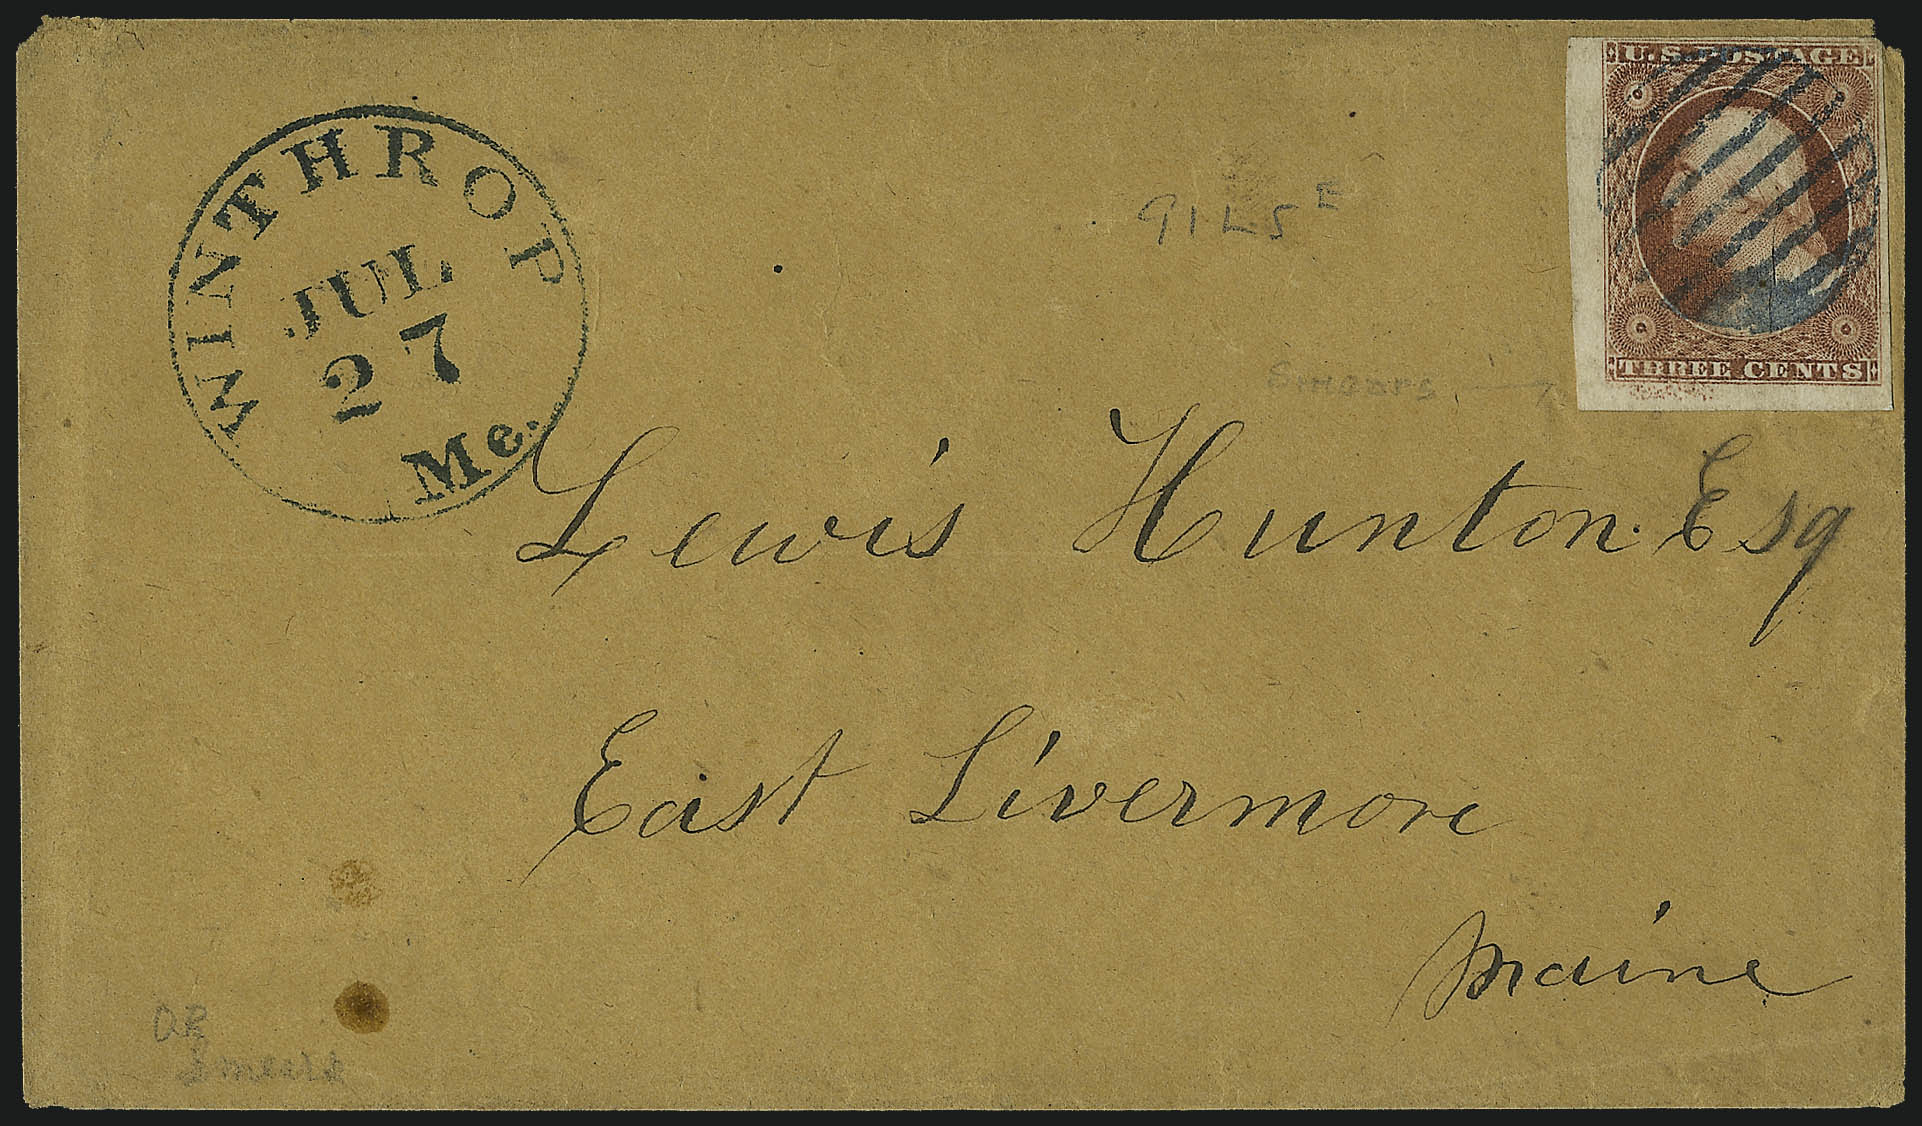 WINTHROP
JUL
27
Me.
U.S. POSTAGE
THREE CENTS
91L5 E
Smears
Lewis Hunton. Esq
East Livermore
Maine
Smears